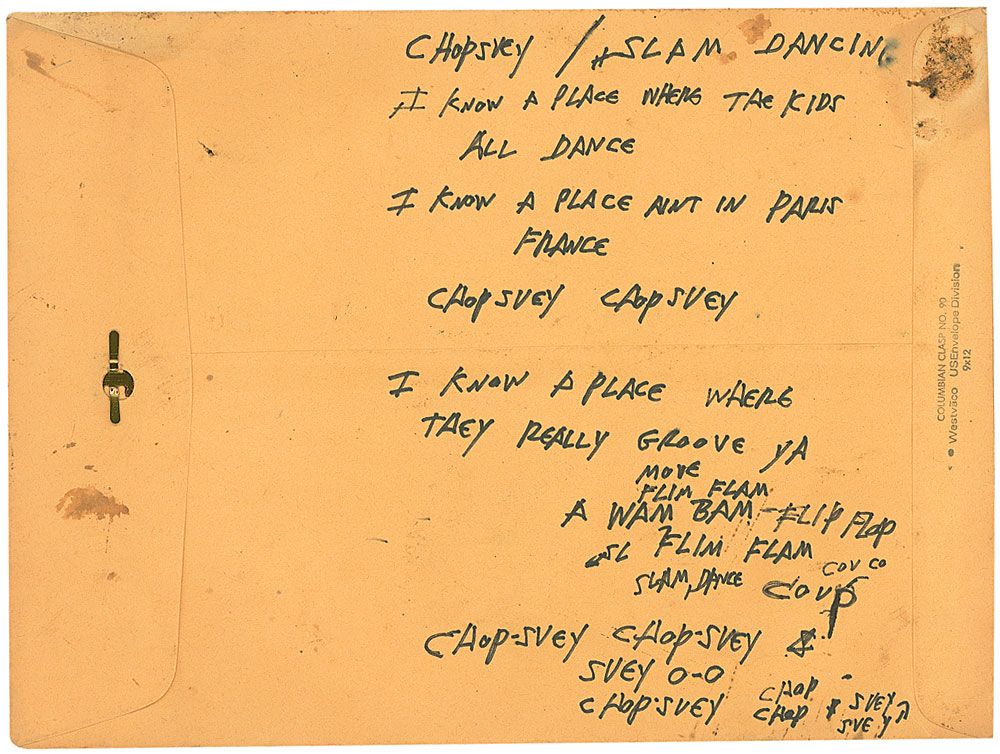 CHOPSVEY / SLAM DANCING
I KNOW A PLACE WHERE THE KIDS
ALL DANCE
I KNOW A PLACE AINT IN PARIS
FRANCE
CHOPSVEY CHOPSVEY
I KNOW A PLACE WHERE
THEY REALLY GROOVE YA
MOVE
FLIM FLAM
A WAM BAM - FLIP FLOP
SL FLIM FLAM
COV CO
SLAM, DANCE COUP
CHOP-SVEY CHOP-SVEY &
SVEY O-O
CHOP-SVEY CHOP -
CHOP & SVEY
SVEY
COLUMBIAN CLASP NO. 90
Westvaco USEnvelope Division
9x12